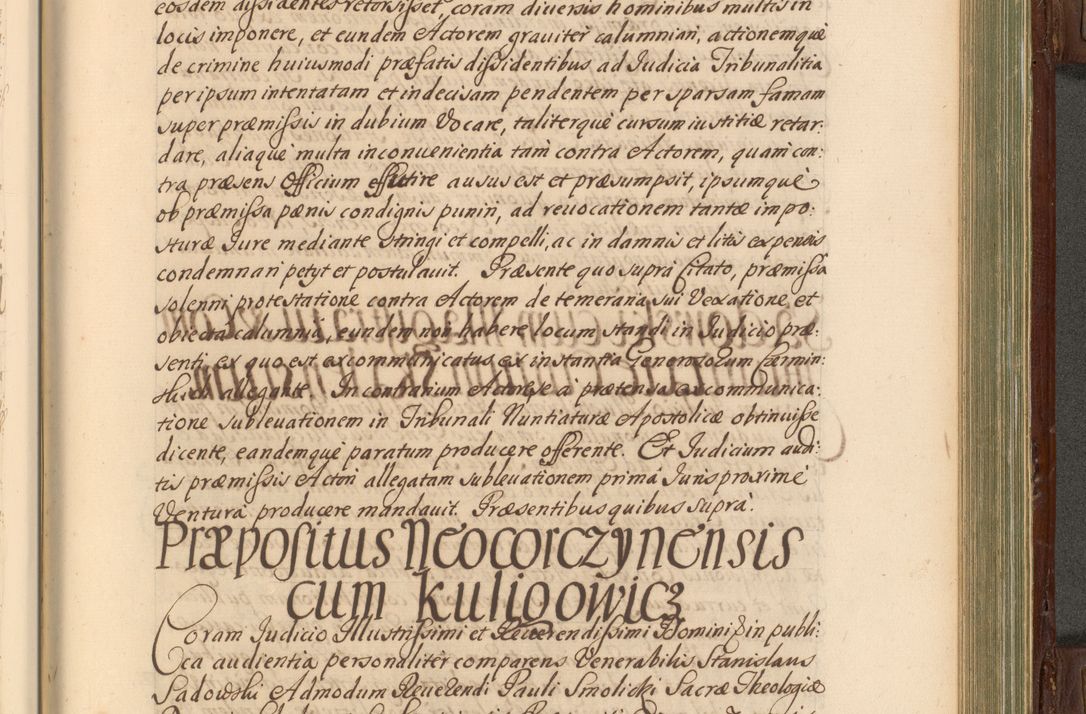 eosdem dissidentes retorsisset, coram diversis hominibus multis in
locis imponere, et eundem Actorem graviter calumniari, actionemque
de crimine huiusmodi præfatis dissidentibus ad Iudicia Tribunalitia
per ipsum intentatam et indecisam pendentem per sparsam famam
super præmissis in dubium Vocare, taliterque cursum iustitiæ retar:
dare, aliaque multa inconvenientia tam contra Actorem, quam con:
tra præsens Officium effutire ausus est et præsumpsit, ipsumque
ob præmissa pænis condignis puniri, ad revocationem tantæ impo:
sturæ Iure mediante stringi et compelli, ac in damnis et litis expensis
condemnari petyt et postulavit. Præsente quo supra Citato, præmissa
solenni protestatione contra Actorem de temeraria sui Vexatione et
obiecta calumnia, eundem non habere locum standi in Iudicio præ:
senti, ex quo est excommunicatus ex instantia Generosorum
allegante. In contrarium Actore a prætensa excommunica:
tione sublevationem in Tribunali Nuntiaturæ Apostolicæ obtinuisse
dicente, eandemque paratum producere offerente. Et Iudicium audi:
tis præmissis Actori allegatam sublevationem prima Iuris proxime
Ventura producere mandavit. Præsentibus quibus supra.
Præpositus Neocorczynensis
cum Kuligowicz
Coram Iudicio Illustrissimi et Reverendissimi Domini in publi:
ca audientia personaliter comparens Venerabilis Stanislaus
Sadowski Admodum Reverendi Pauli Smolicki Sacræ Theologiæ